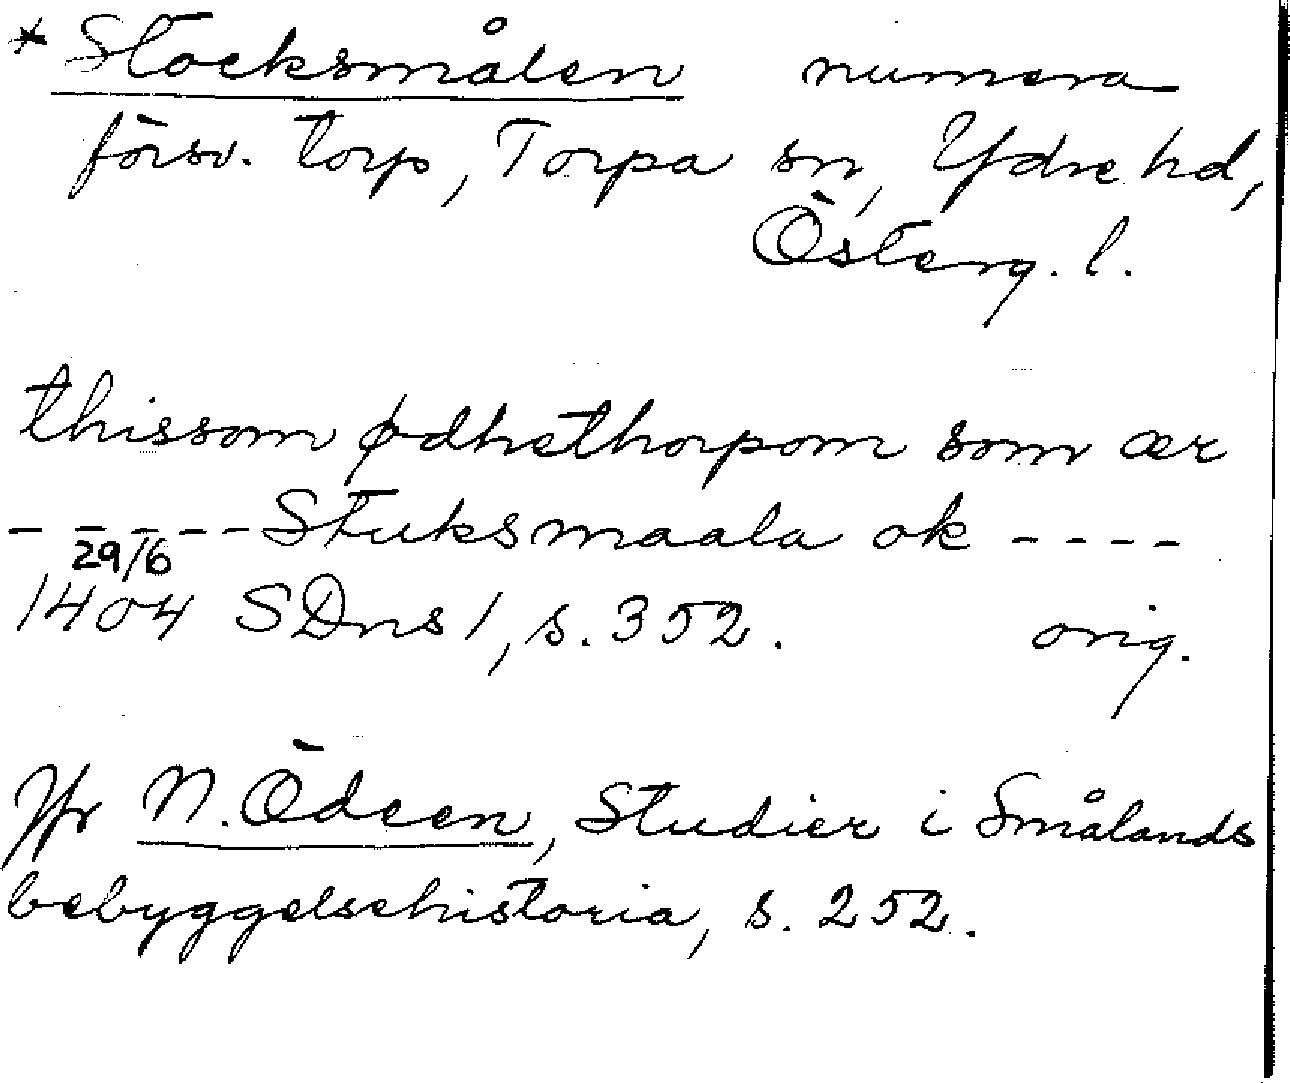 * Stocksmålen numera
försv. torp, Torpa sn, Ydre hd,
Österg. l.
thissom ødhethorpom som ær
- - - - - - Stuksmaala ok - - - -
29/6
1404 SDns 1, s. 352. orig.
Jfr N. Ödeen, Studier i Smålands
bebyggelsehistoria, s. 252.